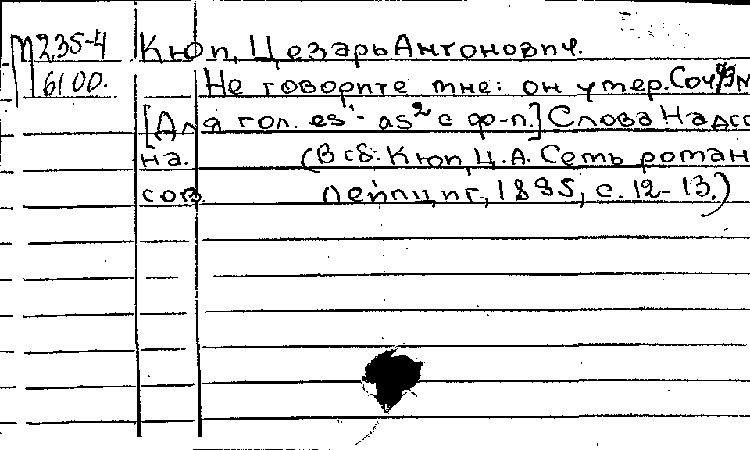 М 235-4 Кюи, Цезарь Антонович.
6100. Не говорите мне: он умер. Соч.
[Для гол. es¹- as² с ф-п.] Слова Надсо
на. (В сб: Кюи, Ц.А. Семь роман
сов. Лейпциг, 1885, с. 12-13.)